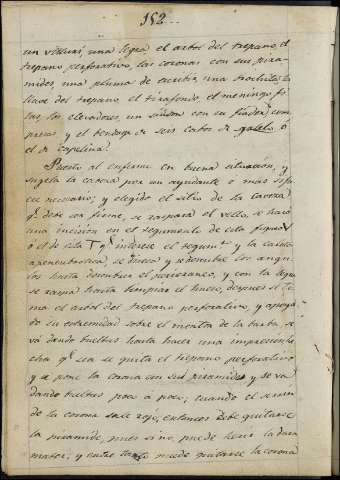 152..
un visturi, una legra el arbol del trepano, el
trepano perforativo, las coronas con sus pira-
mides, una pluma de escribir, una brochita la
llave del trepano el tirafondo, el meningo fi
lax, los elevadores, un con su fiador com
presas y el bendage de seis cabos de galelo o
el de capelina.
Puesto al enfermo en buena situacion, y
sugeta la cabeza por un ayudante o mas si fu
ese necesario; y elegido el sitio de la caveza
q.e debe ser firme, se raspará el vello, se hará
una incision en el tegumento de esta figura V
ó el de esta T q.e interese el tegum.to y la
aponeubrotica, se y se desunen los angu
los hasta descubrir el pericraneo, y con la legra
se raspa hasta limpiar el hueso, despues se to
ma el arbol del trepano perforativo, y apoyan
do su extremidad sobre el menton de la barba se
va dando bueltas hasta hacer una impresion
cha q.e sea se quita el trepano perforativo
y se pone la corona con sus piramides y se va
dando bueltas poco a poco; cuando el serrin
de la corona sale rojo, entonces debe quitarse
la piramide, pues si no, puede herir la dura
mater; y entre tanto puede quitarse la corona